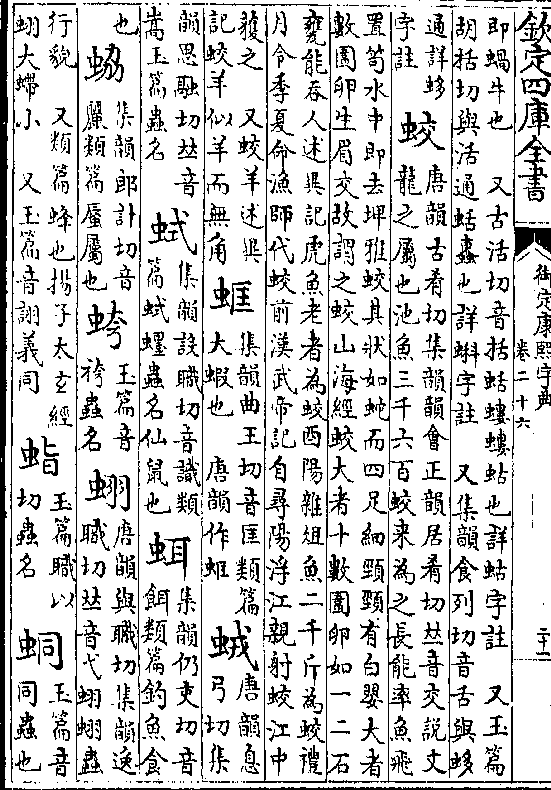 欽定四庫全書
御定康熙字典
卷二十六
二十一
即蝸牛也 又古活切音括蛞螻螻蛄也詳蛄字註 又玉篇
胡括切與活通蛞䗪也詳蝌字註 又集韻食列切音舌與蛥
通詳蛥字註 蛟 唐韻古肴切集韻韻會正韻居肴切𠀤音交説文
龍之屬也池魚三千六百蛟来為之長能率魚飛
置笱水中即去埤雅蛟其狀如蛇而四足細頸頸有白嬰大者
數圍卵生眉交故謂之蛟山海經蛟大者十數圍卵如一二石
甕能吞人述異記虎魚老者為蛟酉陽雜俎魚二千斤為蛟禮
月令季夏命漁師伐蛟前漢武帝記自尋陽浮江親射蛟江中
獲之 又蛟羊述異記蛟羊似羊而無角 𧊰 集韻曲王切音匡類篇
大蝦也 唐韻作蚟 𧊕 唐韻息弓切集
韻思融切𠀤音嵩玉篇蟲名 𧊖 集韻設職切音識類
篇蛓蟔蟲名仙鼠也 𧊝 集韻仍吏切音
餌類篇釣魚食
也 𧊿 集韻郎計切音
麗類篇蜃屬也 𧊘 玉篇音
袴蟲名 𧊤 唐韻與職切集韻逸
職切𠀤音弋蛡蛡蟲
行貌 又類篇蜂也揚子太玄經
蛡大螮小 又玉篇音詡義同 𧊠 玉篇職以
切蟲名 𧊚 玉篇音
同蟲也